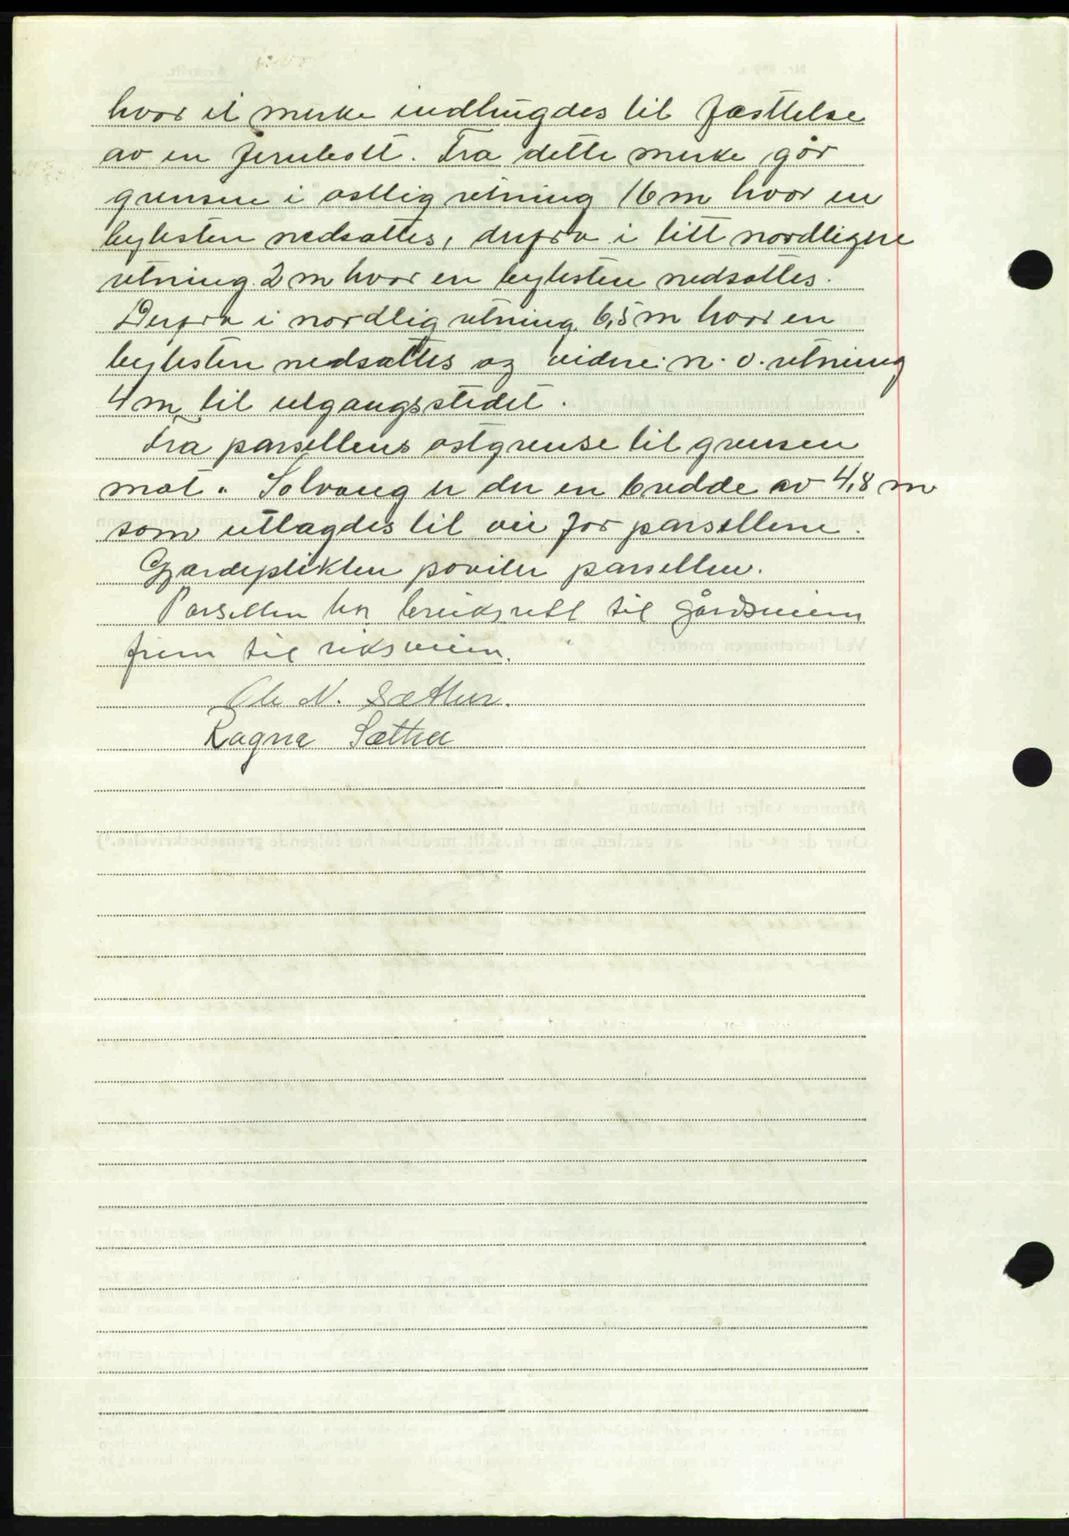 hvor et merke indhugdes til fæsttelse
av en jernbolt. Fra dette merke går
grensen i østlig retning 16 m hvor en
bytesten nedsattes, derfra i litt nordligere
retning 2 m hvor en bytesten nedsattes.
Derfra i nordlig retning 6,5 m hvor en
bytesten nedsattes og videre n. v. retning
4 m til utgangsstedet.
Fra parsellens østgrense til grensen
mot "Solvang er der en bredde av 4,8 m
som utlagdes til vei for parsellene.
Gjærdeplikten påviler parsellen.
Parsellen har bruksrett til gårdsveien
frem til riksveien.
Ole N. Sæther.
Ragna Sæther
Mennene valgte til formann
Over de del av gården, som er fraskilt, meddeles her følgende grensebeskrivelse.